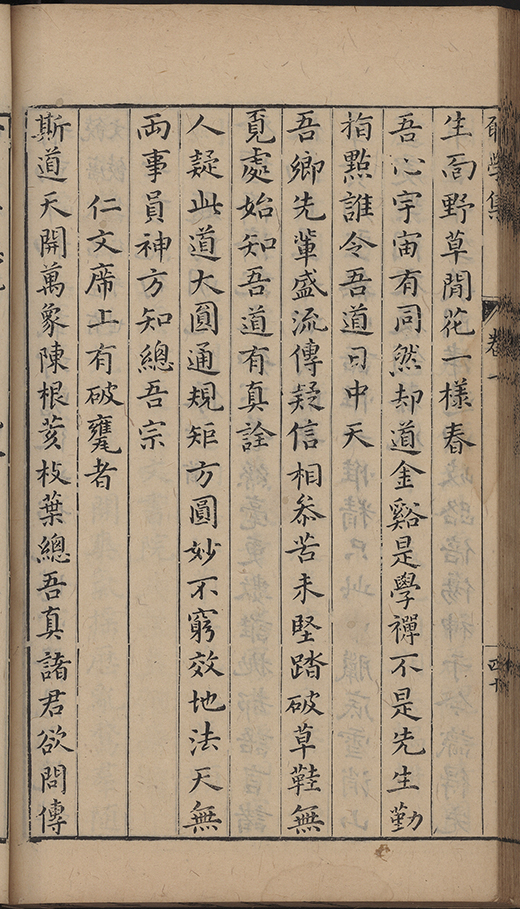 學集 卷一
生面野草閒花一樣春
吾心宇宙有同然却道金谿是學禪不是先生勤
指點誰令吾道日中天
吾鄉先輩盛流傳疑信相叅苦未堅踏破草鞋無
覓處始知吾道有真詮
人疑此道大圓通規矩方圓妙不窮效地法天無
兩事員神方知總吾宗
仁文席上有破甕者
斯道天開萬象陳根荄枝葉總吾真諸君欲問傳